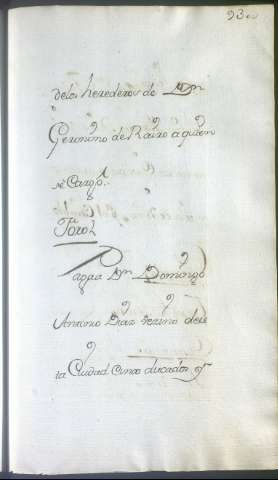 93
delos herederos de Dn
Geronimo de Rairo a quien
se Cargo.
Toro
Pagua Dn Domingo
Antonio Diaz vezino de
ta Ciudad Cinco ducados